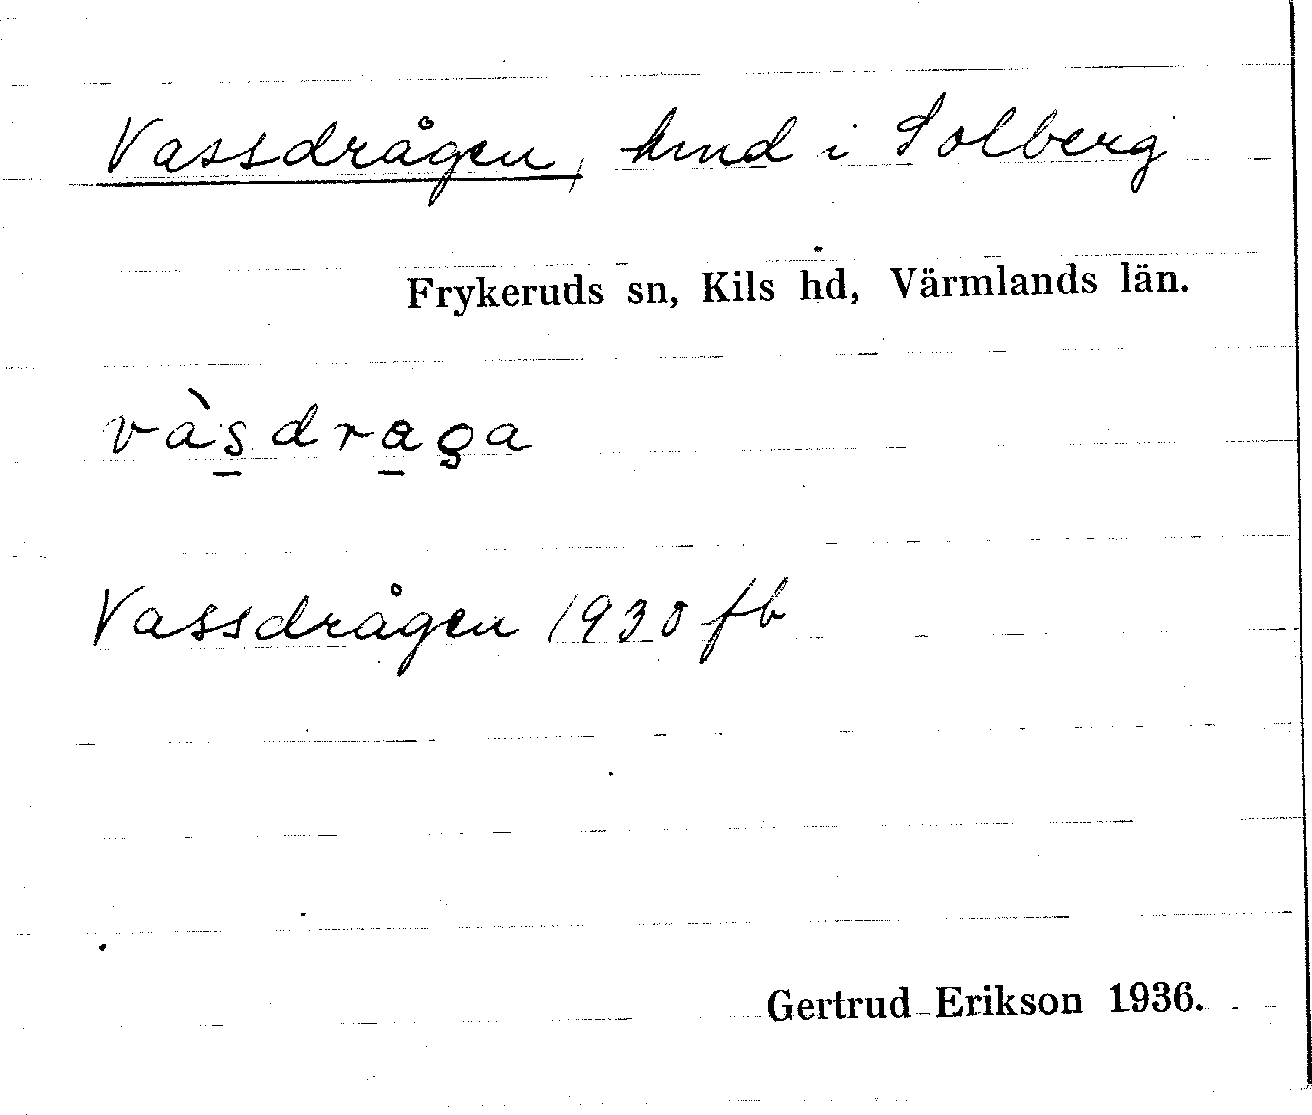 Vassdrågen, hmd i Solberg
Frykeruds sn, Kils hd, Värmlands län.
vàs̲dra̲ga
Vassdrågen 1930 fb
Gertrud Erikson 1936.